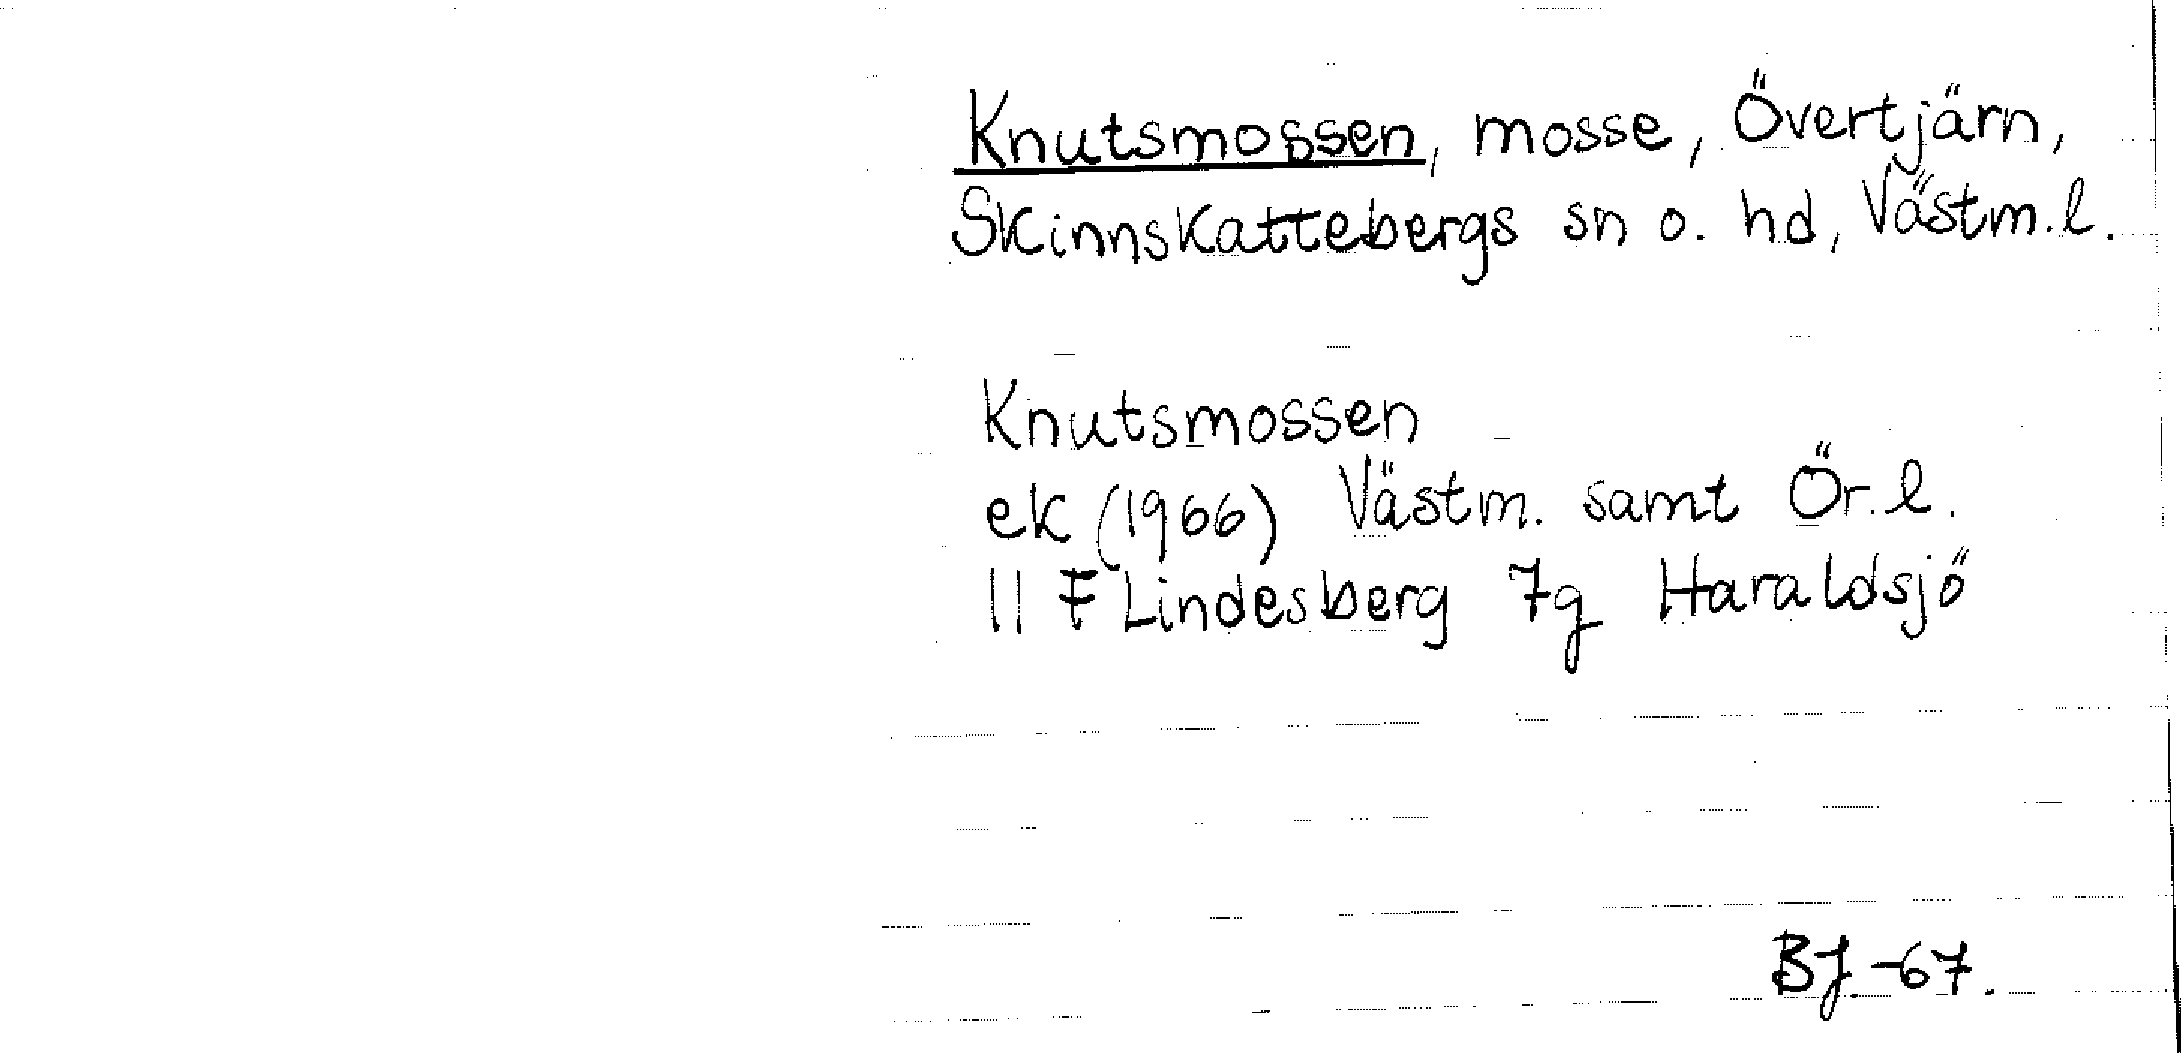 Knutsmossen, mosse, Övertjärn,
Skinnskattebergs sn o. hd, Västm.l.
Knutsmossen
ek (1966) Västm. samt Ör.l.
11 F Lindesberg 7g Haraldsjö
BJ -67.